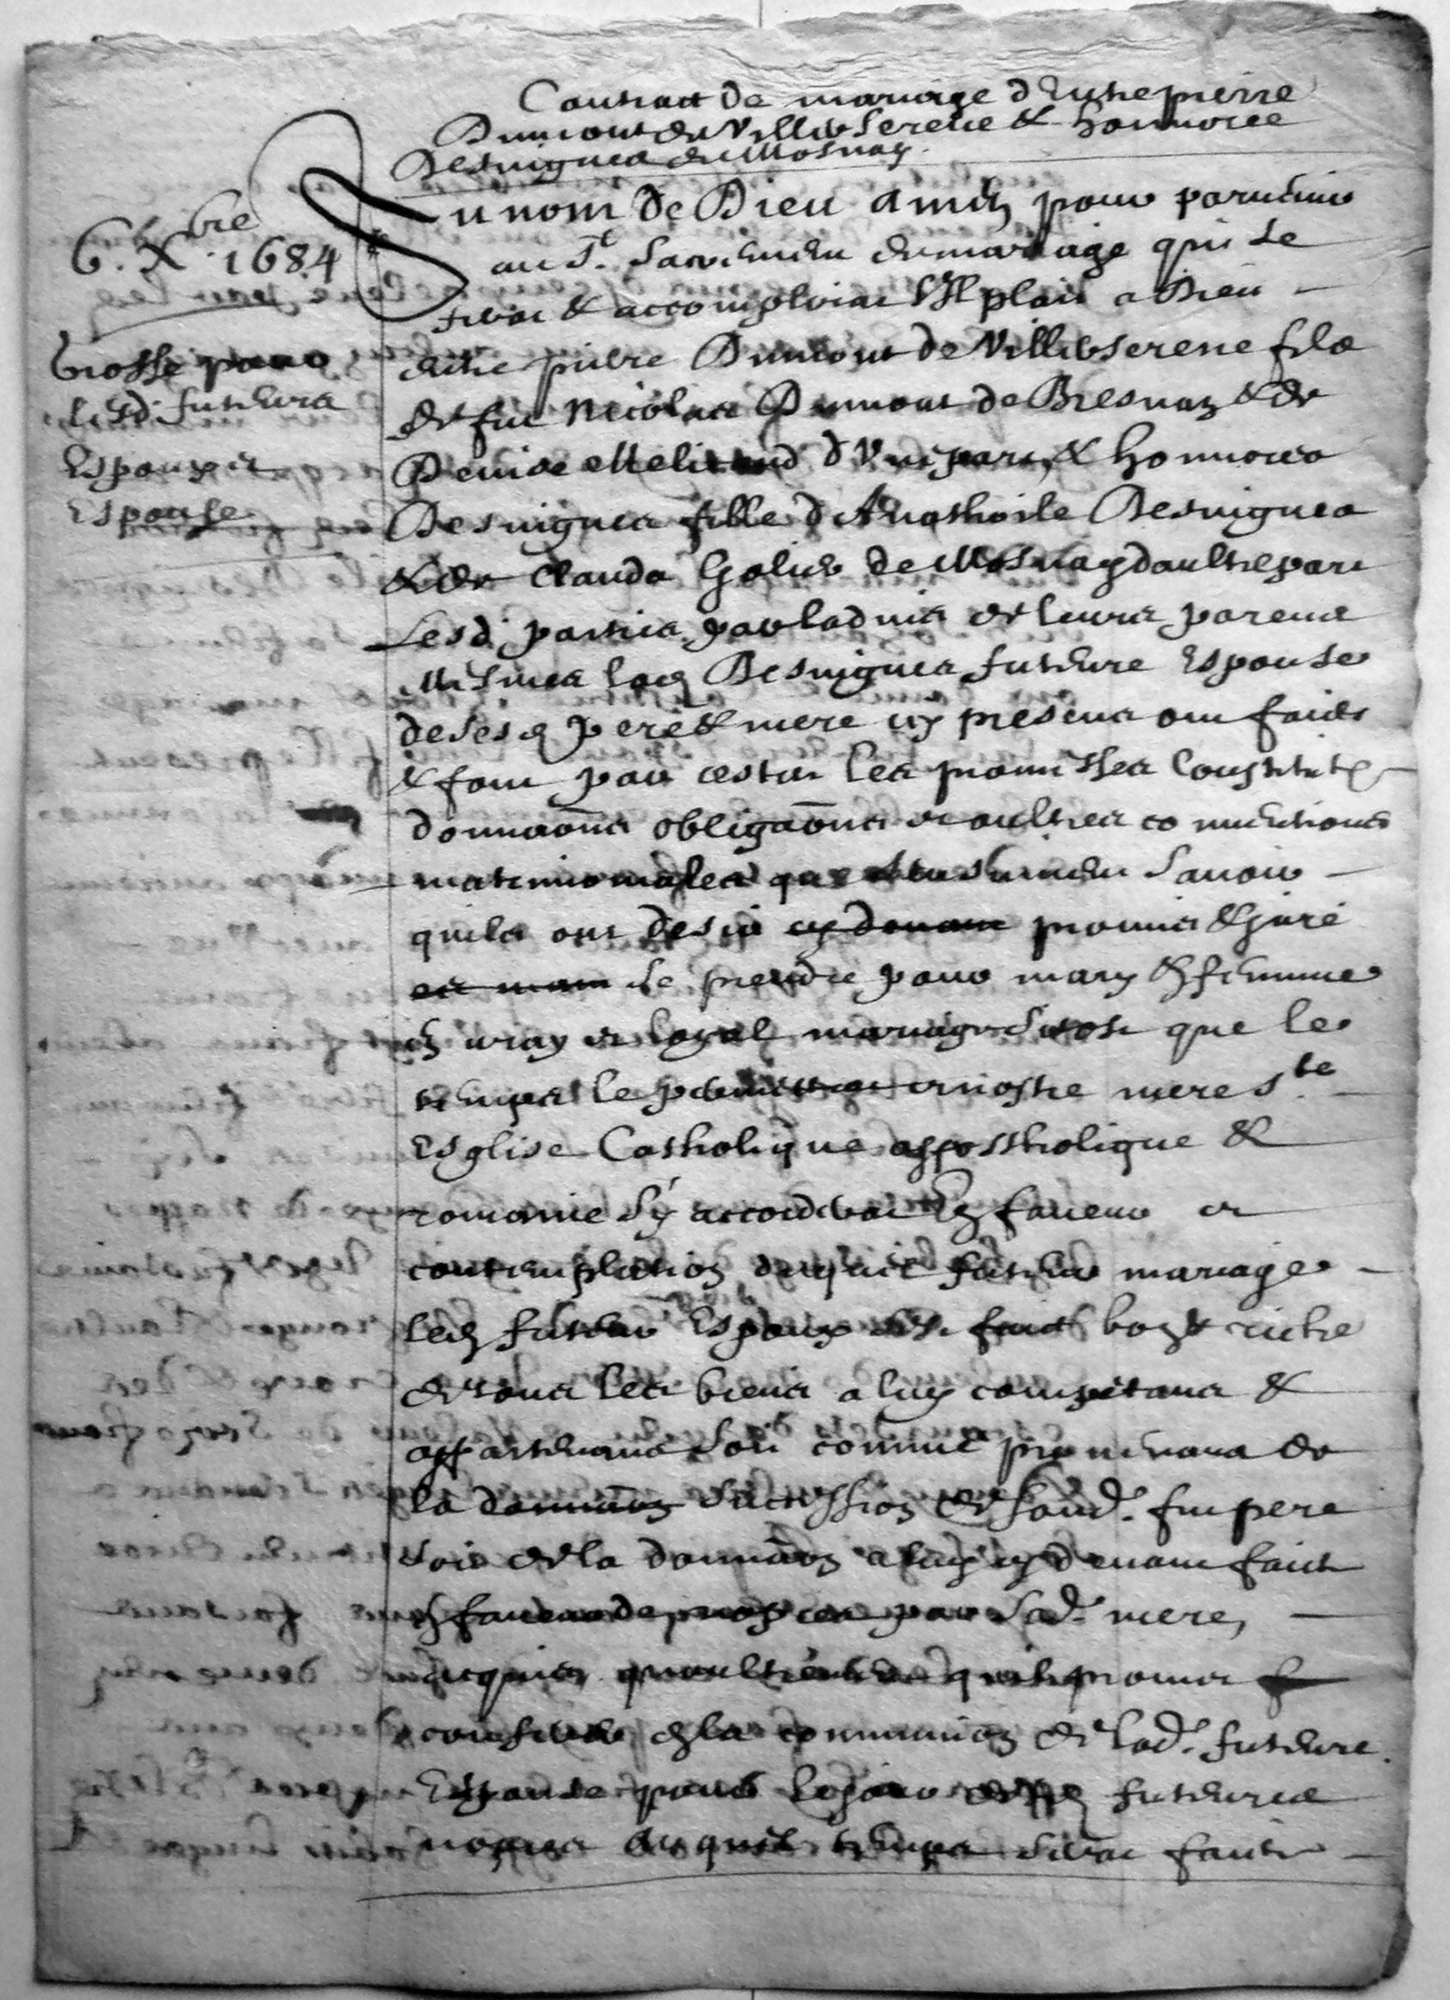 Contract de mariage d'Entre pierre
Dumont de Villerserene & honnoree
Desvignes de Mosnay
6. Xbre 1684
Grosse pour
lesd. futeurs
Espoux et
Espouse
Au nom de Dieu amen pour parvenir
au St. Sacrement de mariage qui se
fera & accomplira s'Il plait a Dieu
entre pierre Dumont de Villerserene filz
de fut Nicolas Dumont de Bresnay & de
Denise d'Une part, & honnoree
Desvignes fille d'Anathoile Desvignes
& de Clauda de Mosnay d'aultre part
Lesd. parties par ladvis de leurs parens
Mesmes lad Desvignes future Espouse
de sesd pere & mere cy presens ont faict
& font par cestes les promesses Constitut
donnaons obligaons et aultres conventions
matrimoniales que Savoir
quils ont desia cy devant promis & juré
se prendre pour mary & femme
en vray et loyal mariage si tost que le
temps le permettra et nostre mere Ste
Esglise Catholique appostholique &
romaine s'y accordera En faveur et
contemplation duquel futeur mariage
led futeur Espoux s'est faict bon & riche
de tous les biens a luy competans &
appartenans soit comme provenans de
la succession de fond. fut pere
soit de la donnaon a luy cy devant faict
en faveur de par sad. mere,
promet
en la communion de lad. future
Espouse pour le jour futeures
nopces auquel temps sera faict